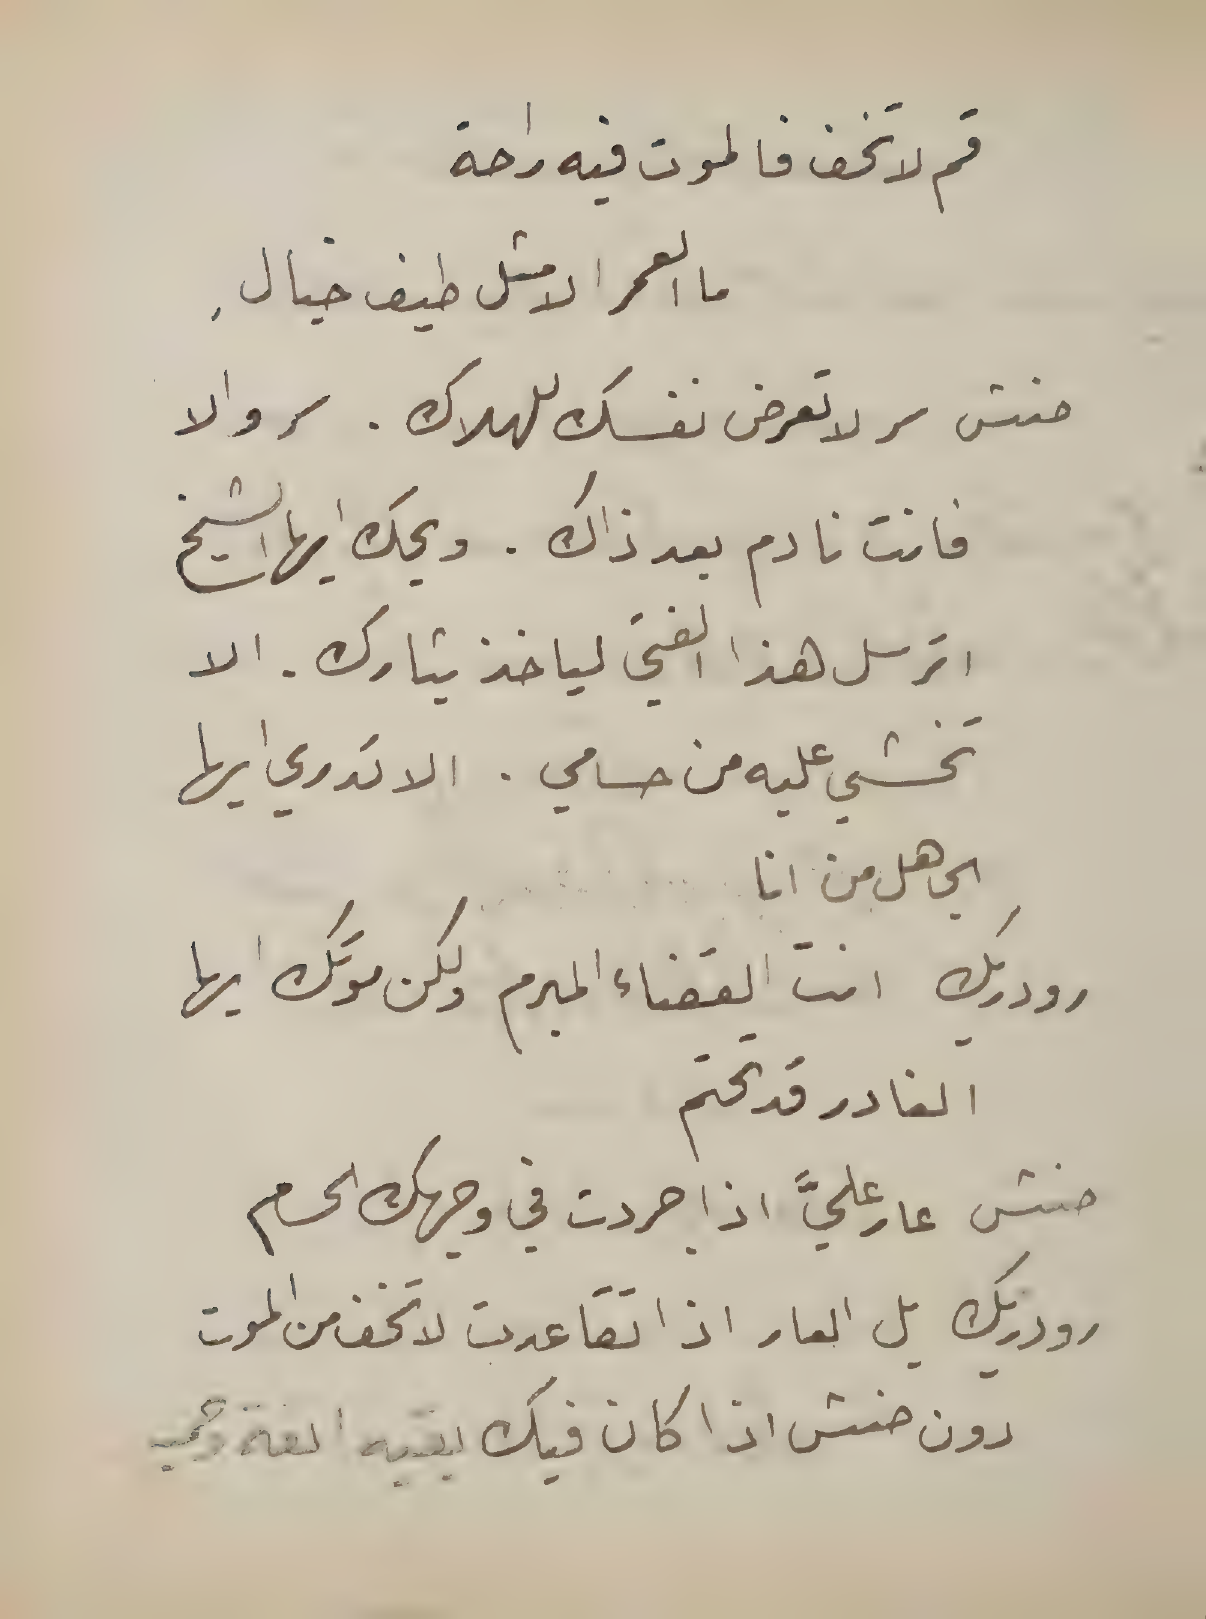 قم لا تخف فالموت فيه راحة
ما العمر الا مثل طيف خيال
حنتش سر لا تعرض نفسك للهلاك . سر والا
فانت نادم بعد ذاك . ويحك ايها الشيخ
اترسل هذا الفتى لياخذ بثارك . الا
تخشي عليه من حسامي . الا تدري ايها
الجاهل من انا
رودريك انت القضاء المبرم ولكن موتك ايها
الغادر قد تحتم
حنتش عار عليَّ اذا جردت في وجهك الحسام
رودريك بل العار اذا تقاعدت لا تخف من الموت
دون حنتش اذا كان فيك بقيه